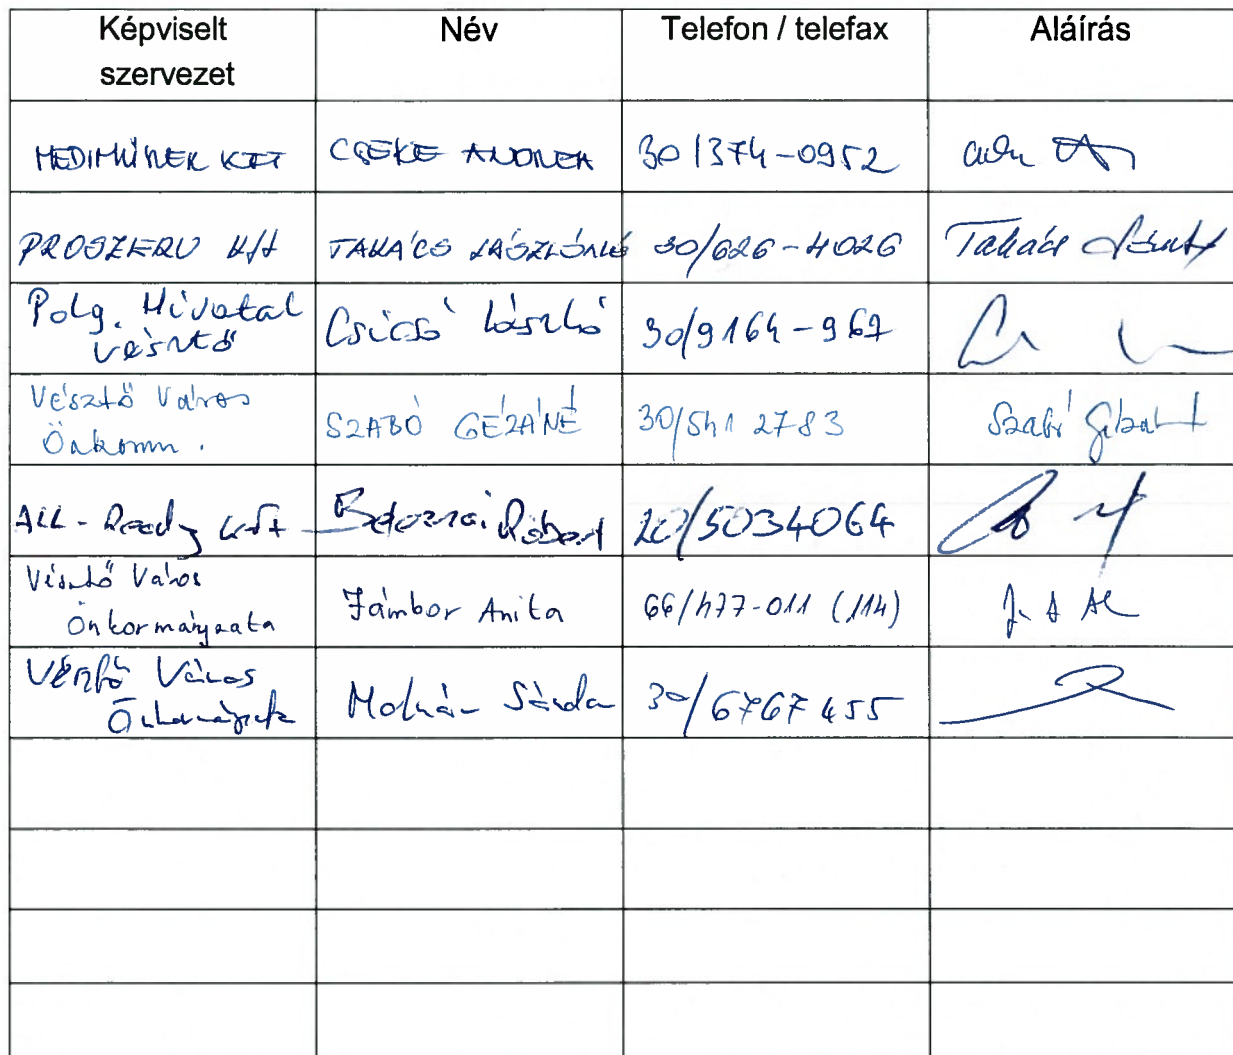 Képviselt szervezet Név Telefon / telefax Aláírás
CSEKE ANDREA 30/374-0952
PROSZERV Kft TAKÁCS LÁSZLÓNÉ 30/626-4026 Takács
Polg. Hivatal Vésztő Csicsó László 30/9164-967
Vésztő Város Önkorm. SZABÓ GÉZÁNÉ 30/541 2783 Szabó Gézáné
All-Ready Kft Róbert 20/5034064
Vésztő Város Önkormányzata Jámbor Anita 66/477-011 (114)
Vésztő Város Önkormányzata Molnár Sándor 30/6767455